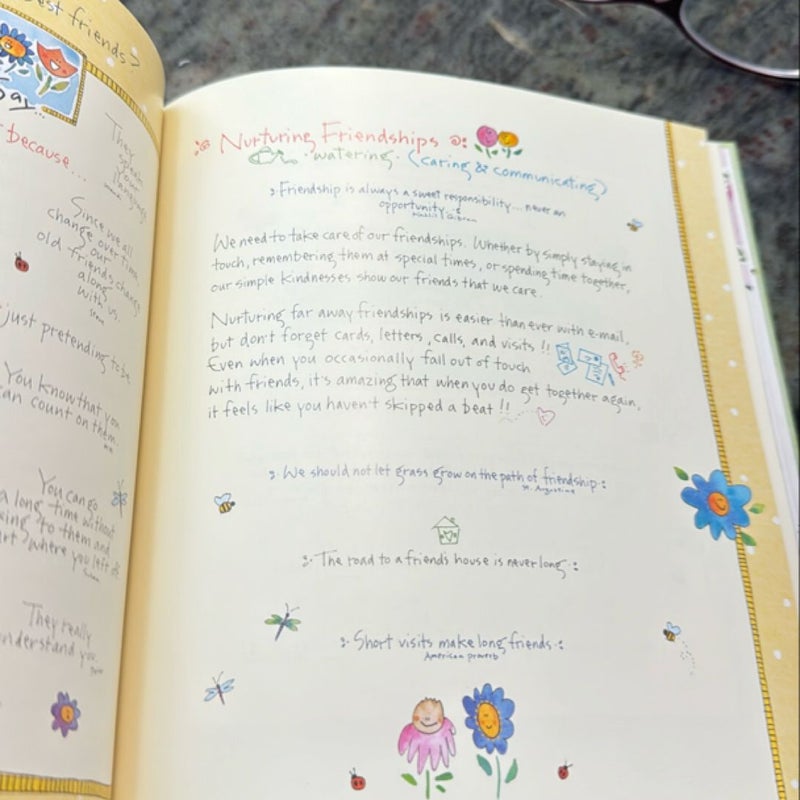 est friends?
ay...
because...
They
speak
your
language
Since we all
change over time,
our
old friends change
along
with us.
just pretending to be
You know that you
can count on them.
You can go
a long time without
to them and
where you left off.
They really
understand you.
Nurturing Friendships
• watering • (caring & communicating)
Friendship is always a sweet responsibility... never an
opportunity.
Kahlil Gibran
We need to take care of our friendships. Whether by simply staying in
touch, remembering them at special times, or spending time together,
our simple kindnesses show our friends that we care.
Nurturing far away friendships is easier than ever with e-mail,
but don't forget cards, letters, calls, and visits !!
Even when you occasionally fall out of touch
with friends, it's amazing that when you do get together again,
it feels like you haven't skipped a beat !!
We should not let grass grow on the path of friendship.
St. Augustine
The road to a friend's house is never long.
Short visits make long friends.
American proverb